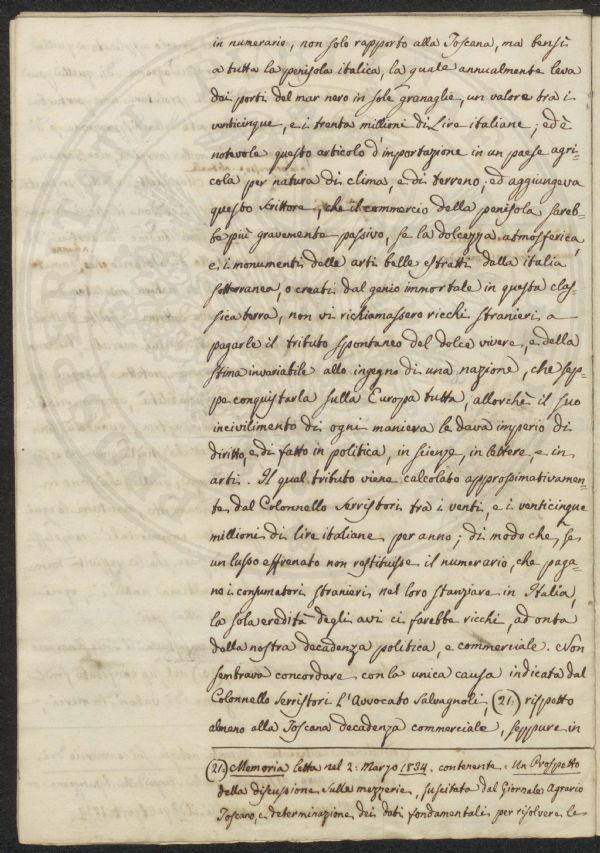 in numerario, non solo rapporto alla Toscana, ma bensì
a tutta la penisola italica, la quale annualmente leva
dai porti del mar nero in sole granaglie, un valore tra i
venticinque, e i trenta millioni di Lire italiane; ed è
notevole questo articolo d'importazione in un paese agri=
cola per natura di clima, e di terreno; ed aggiungeva
questo Scrittore, che il commercio della penisola sareb=
be più gravemente passivo, se la dolcezza atmosferica,
e i monumenti delle arti belle estratti dalla italia
sotterranea, o creati dal genio immortale in questa clas=
sica terra, non vi richiamassero ricchi stranieri a
pagarle il tributo spontaneo del dolce vivere, e della
stima invariabile allo ingegno di una nazione, che sep=
pe conquistarla sulla Europa tutta, allorchè il suo
incivilimento di ogni maniera le dava imperio di
diritto, e di fatto in politica, in scienze, in lettere, e in
arti. Il qual tributo viene calcolato approssimativamen=
te dal Colonnello Serristori tra i venti, e i venticinque
millioni di lire italiane per anno; di modo che, se
un lusso effrenato non restituisse il numerario, che paga=
no i consumatori stranieri nel loro stanziare in Italia,
la sola eredità degli avi ci farebbe ricchi, ad onta
della nostra decadenza politica, e commerciale. Non
sembrava concordare con la unica causa indicata dal
Colonnello Serristori l'Avvocato Salvagnoli (21.) rispetto
almeno alla Toscana decadenza commerciale, seppure in
(21.) Memoria letta nel 2. Marzo 1834. contenente. Un Prospetto
della discussione sulle mezzerie, suscitata dal Giornale Agrario
Toscano, e determinazione dei dati fondamentali per risolvere le